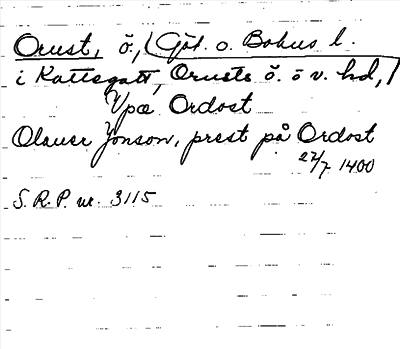 Orust, ö., (Göt. o. Bohus l.
i Kattegatt, Orusts ö. o v. hd,)
Vpæ Ordost
Olauer Jonson, prest på Ordost
22/7 1400
S. R. P. nr. 3115